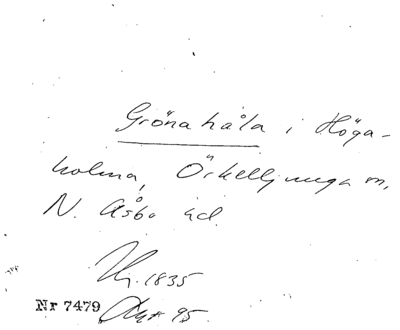 Gröna håla i Höga-
holma, Örkelljunga sn,
N. Åsbo hd.
1835
Nr 7479